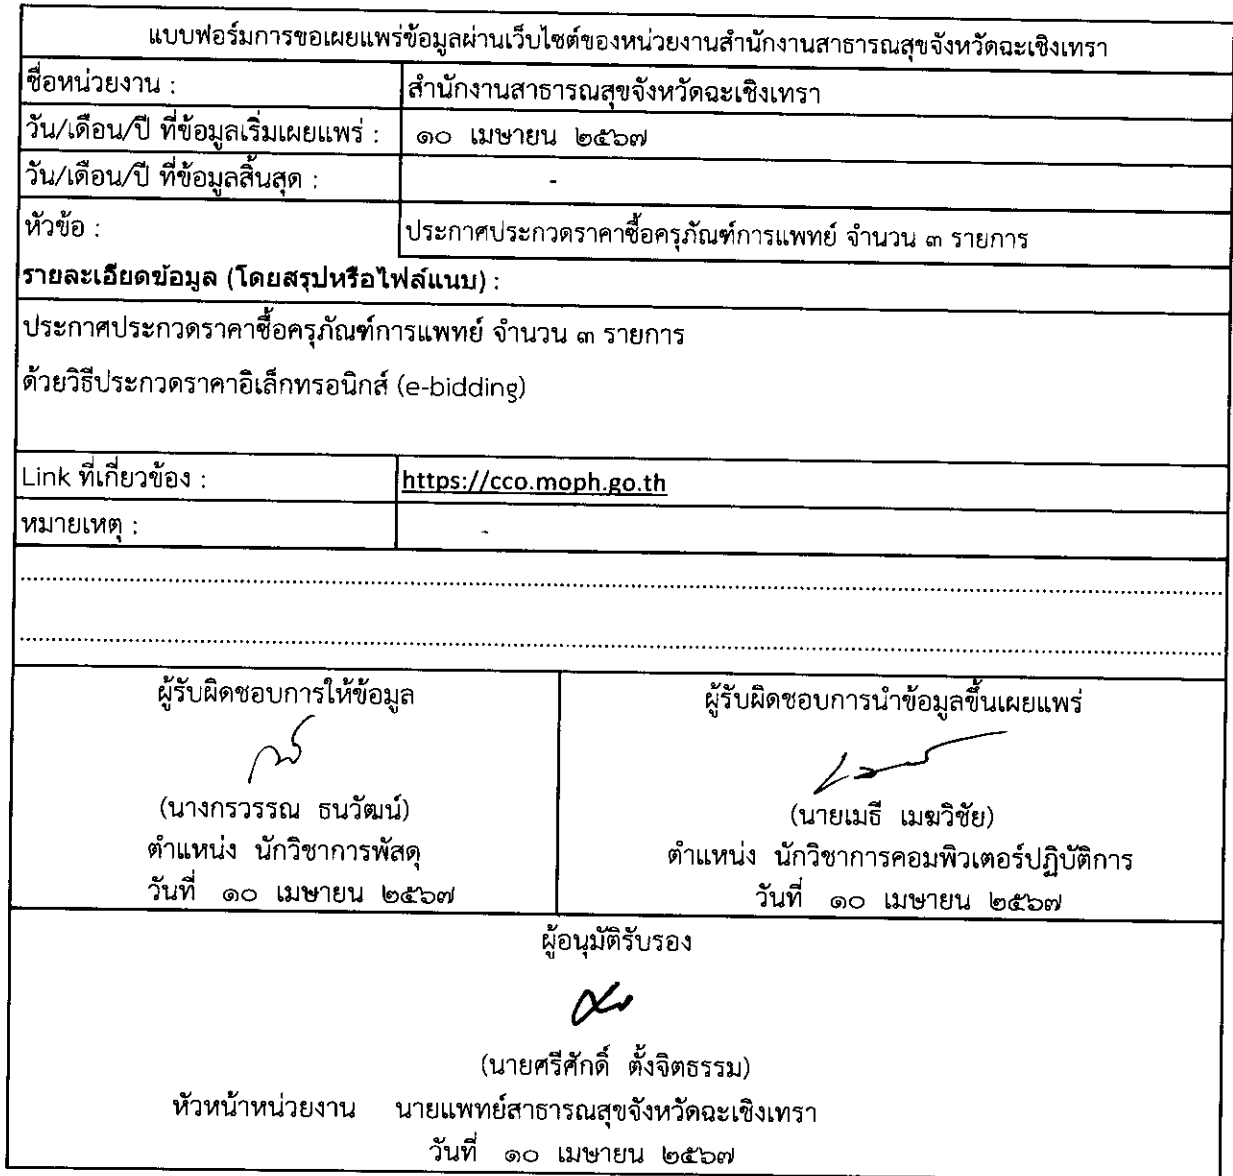 แบบฟอร์มการขอเผยแพร่ข้อมูลผ่านเว็บไซต์ของหน่วยงานสำนักงานสาธารณสุขจังหวัดฉะเชิงเทรา
ชื่อหน่วยงาน : สำนักงานสาธารณสุขจังหวัดฉะเชิงเทรา
วัน/เดือน/ปี ที่ข้อมูลเริ่มเผยแพร่ : ๑๐ เมษายน ๒๕๖๗
วัน/เดือน/ปี ที่ข้อมูลสิ้นสุด : -
หัวข้อ : ประกาศประกวดราคาซื้อครุภัณฑ์การแพทย์ จำนวน ๓ รายการ
รายละเอียดข้อมูล (โดยสรุปหรือไฟล์แนบ) :
ประกาศประกวดราคาซื้อครุภัณฑ์การแพทย์ จำนวน ๓ รายการ
ด้วยวิธีประกวดราคาอิเล็กทรอนิกส์ (e-bidding)
Link ที่เกี่ยวข้อง : https://cco.moph.go.th
หมายเหตุ : -
ผู้รับผิดชอบการให้ข้อมูล
(นางกรวรรณ ธนวัฒน์)
ตำแหน่ง นักวิชาการพัสดุ
วันที่ ๑๐ เมษายน ๒๕๖๗
ผู้รับผิดชอบการนำข้อมูลขึ้นเผยแพร่
(นายเมธี เมฆวิชัย)
ตำแหน่ง นักวิชาการคอมพิวเตอร์ปฏิบัติการ
วันที่ ๑๐ เมษายน ๒๕๖๗
ผู้อนุมัติรับรอง
(นายศรีศักดิ์ ตั้งจิตธรรม)
หัวหน้าหน่วยงาน นายแพทย์สาธารณสุขจังหวัดฉะเชิงเทรา
วันที่ ๑๐ เมษายน ๒๕๖๗